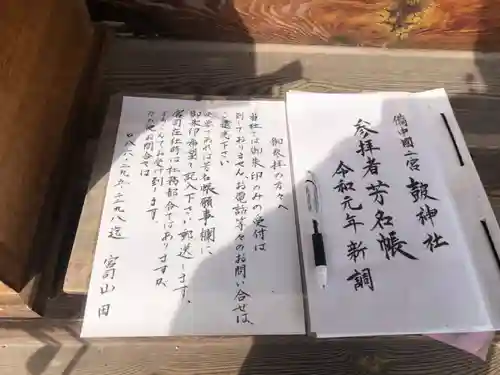 御参拝の方々へ
当社では御朱印のみの受付は
致しておりません。お電話等でのお問い合せは
ご遠慮下さい。
必要であれば芳名帳願事欄に
御朱印希望と記入下さい。郵送します。
宮司在社時は社務都合ではありますが、
お受け致します。
お問合せは
〇八六-二九五-二二九八迄
宮司 山田
備中國一宮 鼓神社
参拝者芳名帳
令和元年新調